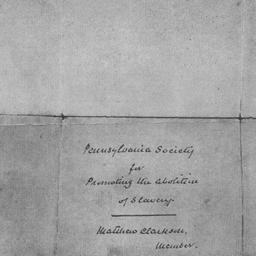 Pennsylvania Society
for
Promoting the Abolition
of Slavery.
Matthew Clarkson,
Member.